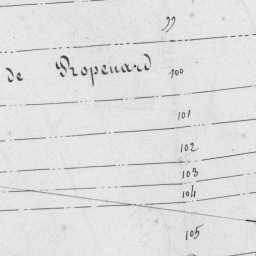 99
de Propenard
100
101
102
103
104
105